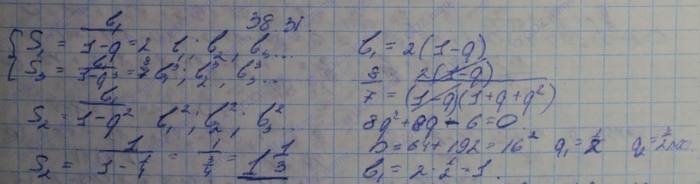 38 зі.
S₁ = b₁/(1-q) = 2   b₁; b₂, b₃ ...
S₃ = b₁³/(1-q³) = 8/7   b₁³; b₂³, b₃³ ...
S₂ = b₁²/(1-q²)   b₁²; b₂², b₃² ...
S₂ = 1/(1-1/4) = 1/(3/4) = 1 1/3
b₁ = 2(1-q)
8/7 = 2(1-q)/((1-q)(1+q+q²))
8q²+8q-6=0
D=64+192=16²   q₁=1/2
b₁ = 2·1/2=1.